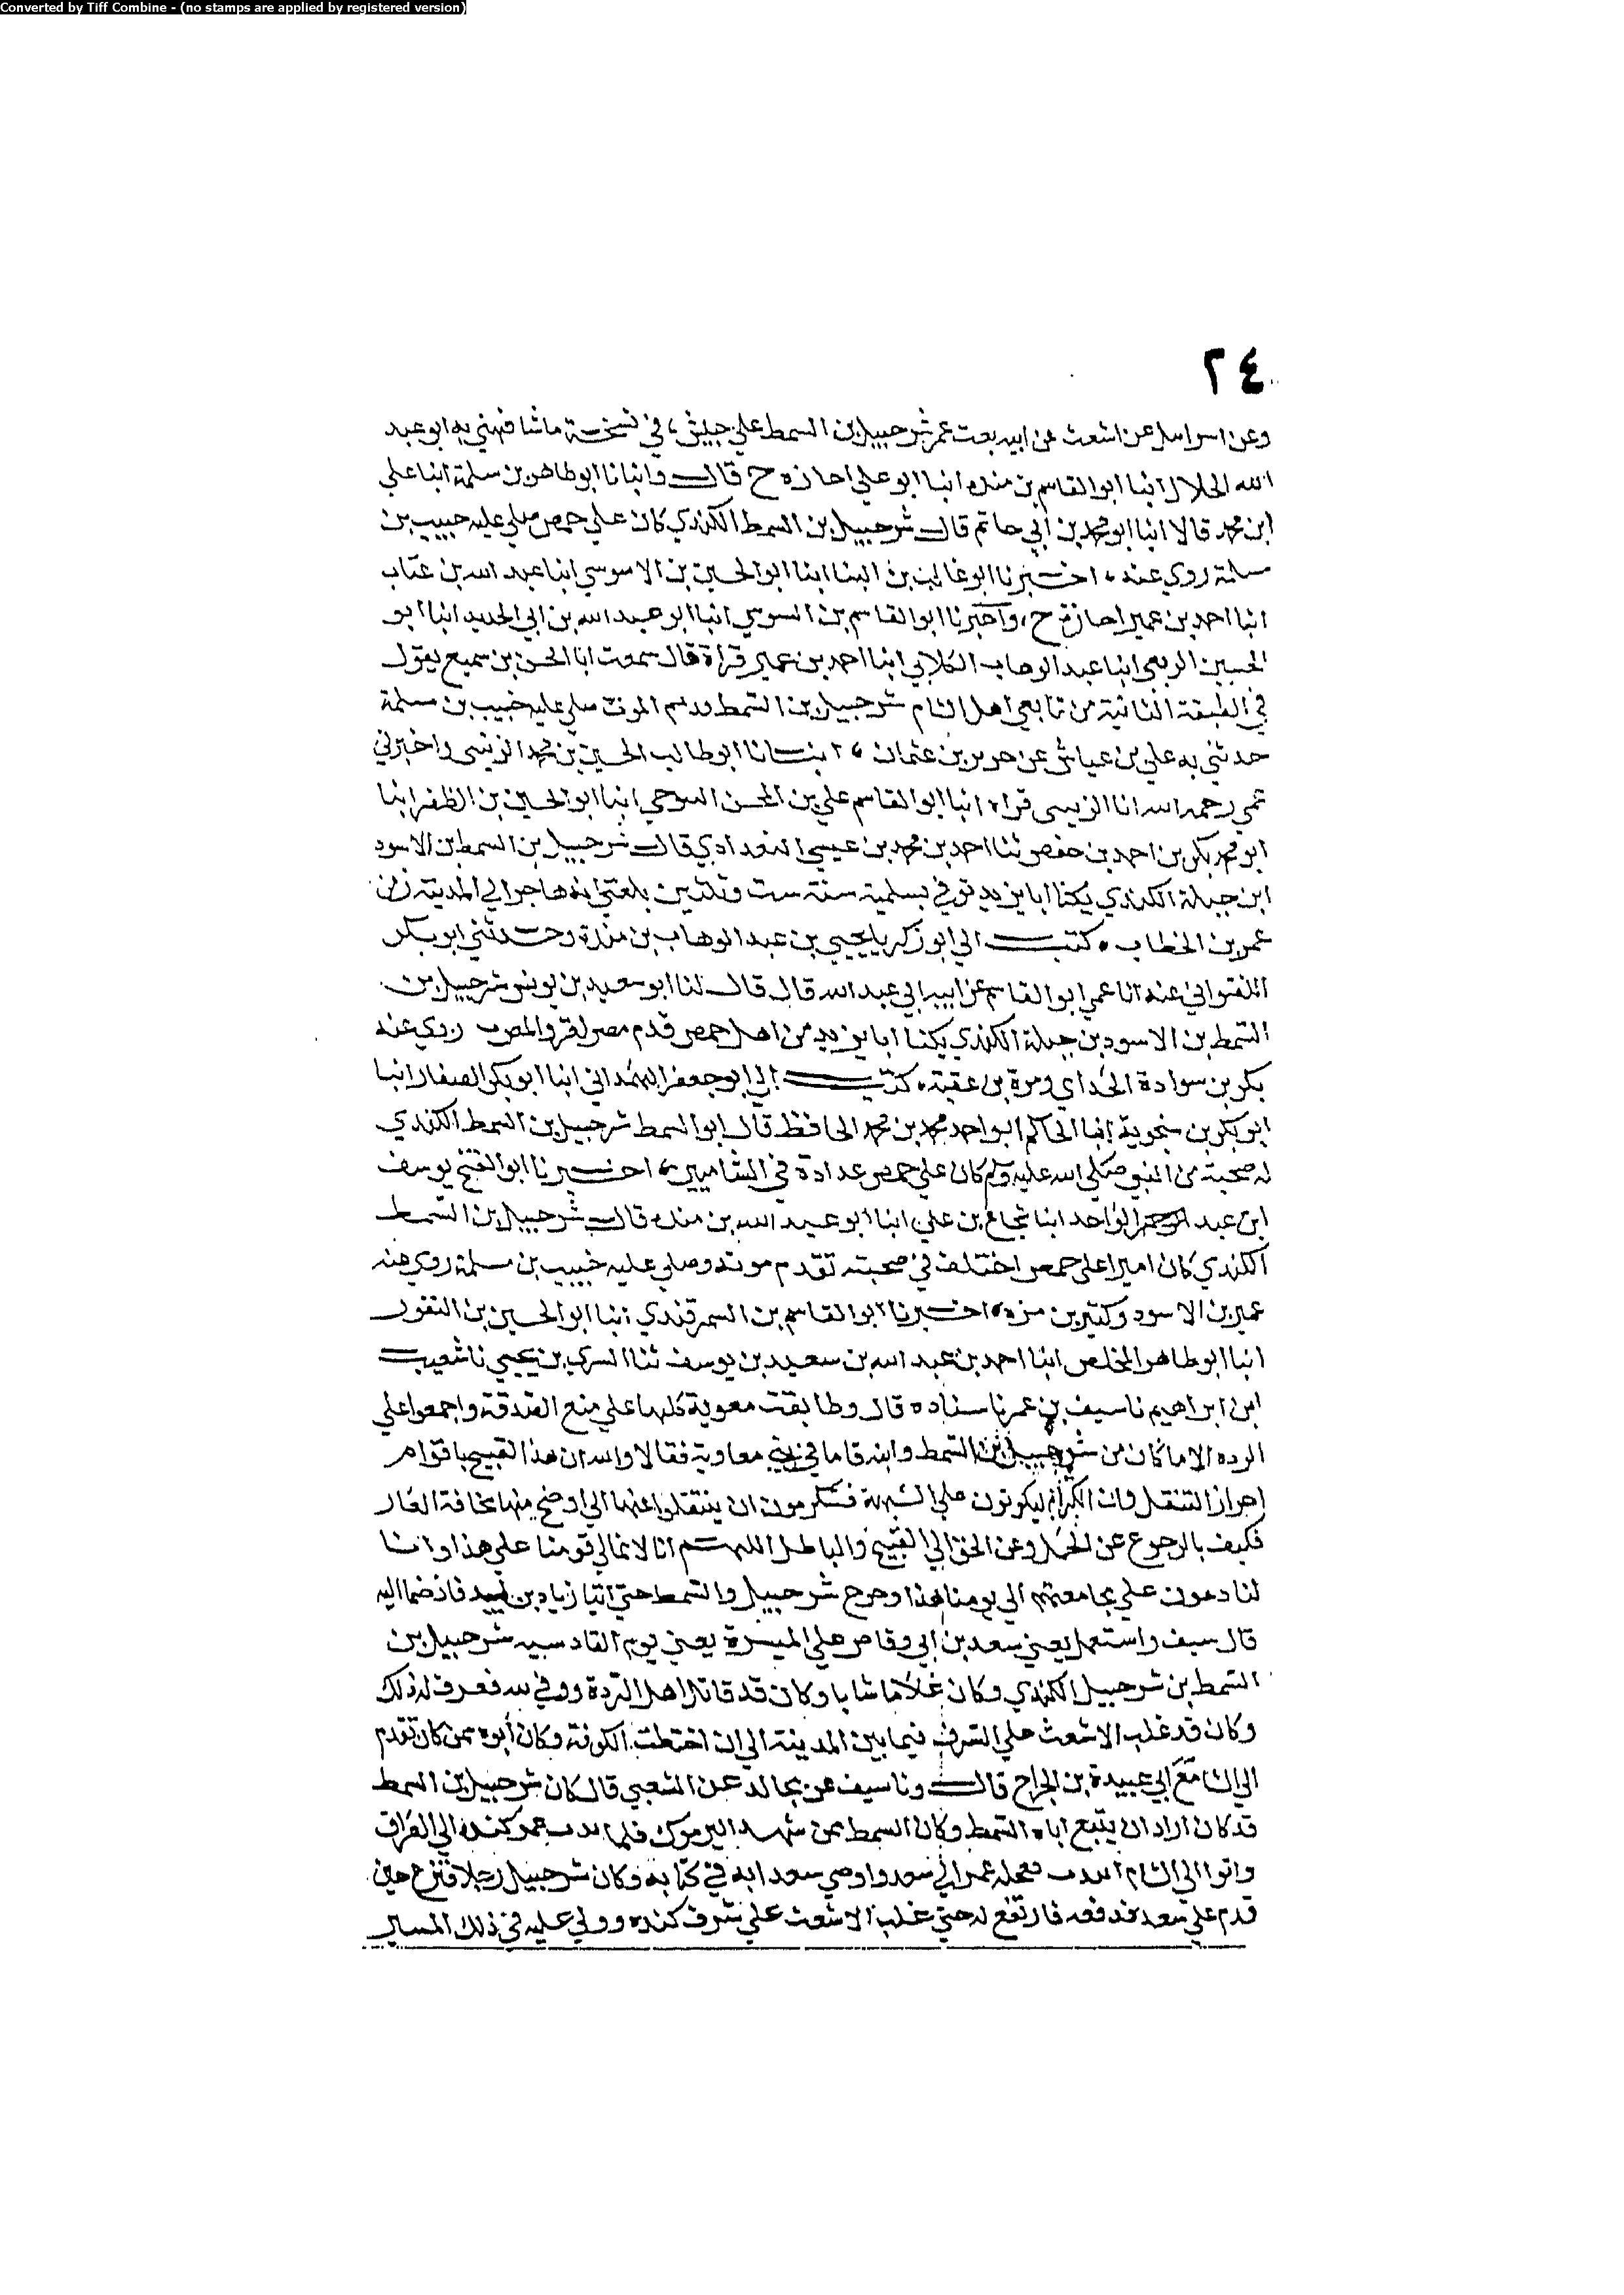 Converted by Tiff Combine - (no stamps are applied by registered version)
٢٤
وعن اسراىىل عن اشعث عن ابيه بعث عمر شرحبيل بن السمط علي جيش، في نسخة ما شافهني به ابو عبد
الله الخلال انبا ابو القاسم بن منده انبا ابو علي اجازه ح قال وانبانا ابو طاهر بن سلمة انبا علي
ابن محمد قالا انبا ابو محمد بن ابي حاتم قال شرحبيل بن السمط الكندي كان علي حمص صلي عليه حبيب بن
مسلمة روي عنه، اخبرنا ابو غالب بن البنا ابنا ابو الحسين بن الابنوسي ابنا عبد الله بن عتاب
انبا احمد بن عمير اجازة ح، واخبرنا ابو القاسم بن السوسي انبا ابو عبد الله بن ابي الحديد انبا ابو
الحسين الربعي ابنا عبد الوهاب الكلابي ابنا احمد بن عمير قراة قال سمعت ابا الحسن بن سميع يقول
في الطبقة الثانية من تابعي اهل الشام شرحبيل بن السمط قديم الموت صلي عليه حبيب بن مسلمة
حدثني به علي بن عياش عن حريز بن عثمان، انبانا ابو طالب الحسين بن محمد الزينبي واخبرني
عمي رحمه الله انا الزينبي قراه انبا ابو القاسم علي بن المحسن التنوخي انبا ابو الحسين بن المظفر ابنا
ابو محمد بكر بن احمد بن حفص ثنا احمد بن محمد بن عيسي البغدادي قال شرحبيل بن السمط بن الاسود
ابن جبلة الكندي يكنا ابا يزيد توفي بسلمية سنة ست وثلثين بلغني انه هاجر الي المدينة زمن
عمر بن الخطاب، كتب الي ابو زكريا يحيي بن عبد الوهاب بن مندة وحدثني ابو بكر
اللفتواني عنه انا عمي ابو القاسم عن ابيه ابي عبد الله قال قال لنا ابو سعيد بن يونس شرحبيل بن
السمط بن الاسود بن جبلة الكندي يكنا ابا يزيد من اهل حمص قدم مصر لغزو المغرب روي عنه
بكر بن سوادة الجذامي ومرة بن عقبة، كتب الي ابو جعفر الهمداني ابنا ابو بكر الصفار انبا
ابو بكر بن منجويه انبا الحاكم ابو احمد محمد بن محمد الحافظ قال ابو السمط شرحبيل بن السمط الكندي
له صحبة من النبي صلي الله عليه وسلم كان علي حمص عداده في الشاميين، اخبرنا ابو الفتح يوسف
ابن عبد الواحد ابنا شجاع بن علي ابنا ابو عبد الله بن منده قال شرحبيل بن السمط
الكندي كان اميرا علي حمص اختلف في صحبته تقدم موته وصلي عليه حبيب بن مسلمة روي عنه
عمير بن الاسود وكثير بن مرة، اخبرنا ابو القاسم بن السمرقندي انبا ابو الحسين بن النقور
انبا ابو طاهر المخلص ابنا احمد بن عبد الله بن سعيد بن يوسف ثنا السري بن يحيي نا شعيب
ابن ابراهيم نا سيف بن عمر باسناده قال وطابقت معوية كلها علي منع الصدقة واجمعوا علي
الرده الا ما كان من شرحبيل بن السمط وابنه قاما في بني معاوية فقالا والله ان هذا لقبيح باقوام
احرار التنقل وان الكرام ليكونون علي الشبهة فيتكرمون ان ينتقلوا عنها الي اوضح منها مخافة العار
فكيف بالرجوع عن الجميل وعن الحق الي القبيح والباطل اللهم انا لا نمالي قومنا علي هذا وانا
لنادمون علي مجامعتهم الي يومنا هذا وخرج شرحبيل والسمط حتي اتيا زياد بن لبيد فانضما اليه
قال سيف واستعمل يعني سعد بن ابي وقاص علي الميسرة يعني يوم القادسيه شرحبيل بن
السمط بن شرحبيل الكندي وكان غلاما شابا وكان قد قاتل اهل الردة ووفي لله فعرف له ذلك
وكان قد غلب الاشعث علي الشرف فيما بين المدينة الي ان اختطت الكوفة وكان أبوه ممن كان تقدم
الي الشام مع ابي عبيدة بن الجراح قال ونا سيف عن مجالد عن الشعبي قال كان شرحبيل بن السمط
قد كان اراد ان يتبع اباه السمط وكان السمط ممن شهد اليرموك فلما ندب عمر كنده الي العراق
واتوا الي الشام انتدب فجعله عمر الي سعد واوصي سعدا به في كتابه وكان شرحبيل رجلا فنزع حين
قدم علي سعد فدفعه فارتفع له حتي غلب الاشعث علي شرف كنده وولي عليه في ذلك المسير